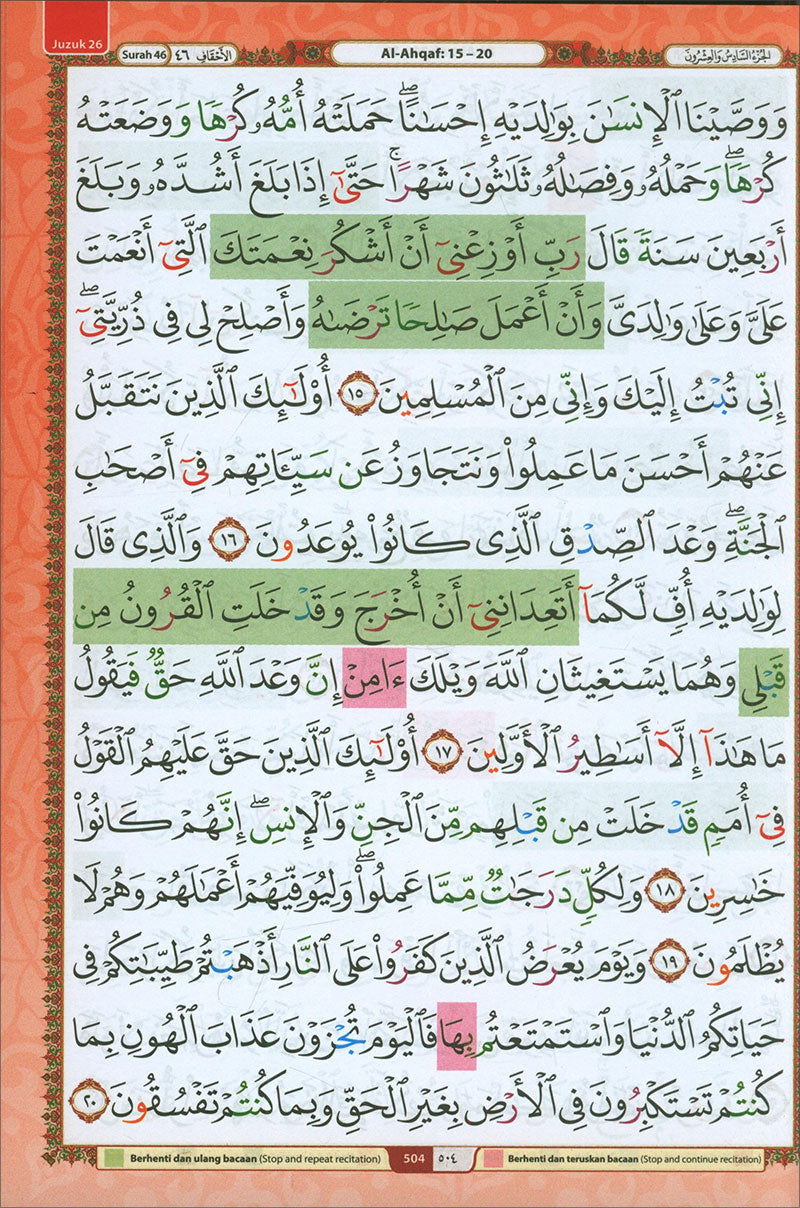 Juzuk 26
Surah 46 الأحقاف ٤٦
Al-Ahqaf: 15 – 20
الجزء السادس والعشرون
وَوَصَّيْنَا ٱلْإِنسَٰنَ بِوَٰلِدَيْهِ إِحْسَٰنًا ۖ حَمَلَتْهُ أُمُّهُۥ كُرْهًا وَوَضَعَتْهُ
كُرْهًا ۖ وَحَمْلُهُۥ وَفِصَٰلُهُۥ ثَلَٰثُونَ شَهْرًا ۚ حَتَّىٰٓ إِذَا بَلَغَ أَشُدَّهُۥ وَبَلَغَ
أَرْبَعِينَ سَنَةً قَالَ رَبِّ أَوْزِعْنِىٓ أَنْ أَشْكُرَ نِعْمَتَكَ ٱلَّتِىٓ أَنْعَمْتَ
عَلَىَّ وَعَلَىٰ وَٰلِدَىَّ وَأَنْ أَعْمَلَ صَٰلِحًا تَرْضَىٰهُ وَأَصْلِحْ لِى فِى ذُرِّيَّتِىٓ ۖ
إِنِّى تُبْتُ إِلَيْكَ وَإِنِّى مِنَ ٱلْمُسْلِمِينَ ١٥ أُو۟لَٰٓئِكَ ٱلَّذِينَ نَتَقَبَّلُ
عَنْهُمْ أَحْسَنَ مَا عَمِلُوا۟ وَنَتَجَاوَزُ عَن سَيِّـَٔاتِهِمْ فِىٓ أَصْحَٰبِ
ٱلْجَنَّةِ ۖ وَعْدَ ٱلصِّدْقِ ٱلَّذِى كَانُوا۟ يُوعَدُونَ ١٦ وَٱلَّذِى قَالَ
لِوَٰلِدَيْهِ أُفٍّ لَّكُمَآ أَتَعِدَانِنِىٓ أَنْ أُخْرَجَ وَقَدْ خَلَتِ ٱلْقُرُونُ مِن
قَبْلِى وَهُمَا يَسْتَغِيثَانِ ٱللَّهَ وَيْلَكَ ءَامِنْ إِنَّ وَعْدَ ٱللَّهِ حَقٌّ فَيَقُولُ
مَا هَٰذَآ إِلَّآ أَسَٰطِيرُ ٱلْأَوَّلِينَ ١٧ أُو۟لَٰٓئِكَ ٱلَّذِينَ حَقَّ عَلَيْهِمُ ٱلْقَوْلُ
فِىٓ أُمَمٍ قَدْ خَلَتْ مِن قَبْلِهِم مِّنَ ٱلْجِنِّ وَٱلْإِنسِ ۖ إِنَّهُمْ كَانُوا۟
خَٰسِرِينَ ١٨ وَلِكُلٍّ دَرَجَٰتٌ مِّمَّا عَمِلُوا۟ ۖ وَلِيُوَفِّيَهُمْ أَعْمَٰلَهُمْ وَهُمْ لَا
يُظْلَمُونَ ١٩ وَيَوْمَ يُعْرَضُ ٱلَّذِينَ كَفَرُوا۟ عَلَى ٱلنَّارِ أَذْهَبْتُمْ طَيِّبَٰتِكُمْ فِى
حَيَاتِكُمُ ٱلدُّنْيَا وَٱسْتَمْتَعْتُم بِهَا فَٱلْيَوْمَ تُجْزَوْنَ عَذَابَ ٱلْهُونِ بِمَا
كُنتُمْ تَسْتَكْبِرُونَ فِى ٱلْأَرْضِ بِغَيْرِ ٱلْحَقِّ وَبِمَا كُنتُمْ تَفْسُقُونَ ٢٠
Berhenti dan ulang bacaan (Stop and repeat recitation) 504 ٥٠٤ Berhenti dan teruskan bacaan (Stop and continue recitation)